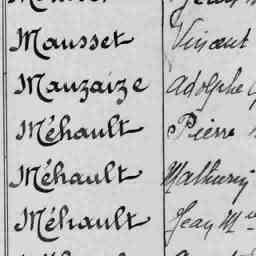 Mausset Vincent
Mauzaize Adolphe
Méhault Pierre
Méhault Mathurin
Méhault Jean M